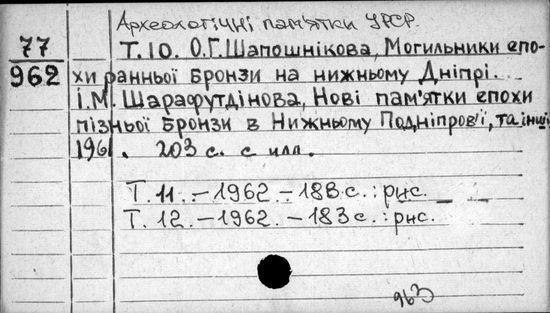 Археологічні пам'ятки УРСР.
77
962
Т. 10. О.Г. Шапошнікова, Могильники епо-
хи ранньої бронзи на нижньому Дніпрі.
І.М. Шарафутдінова, Нові пам'ятки епохи
пізньої бронзи в Нижньому Подніпров'ї, та інші
1961. 203 с. с илл.
Т. 11. – 1962 – 188 с. : рис.
Т. 12. – 1962. – 183 с. : рис.
963